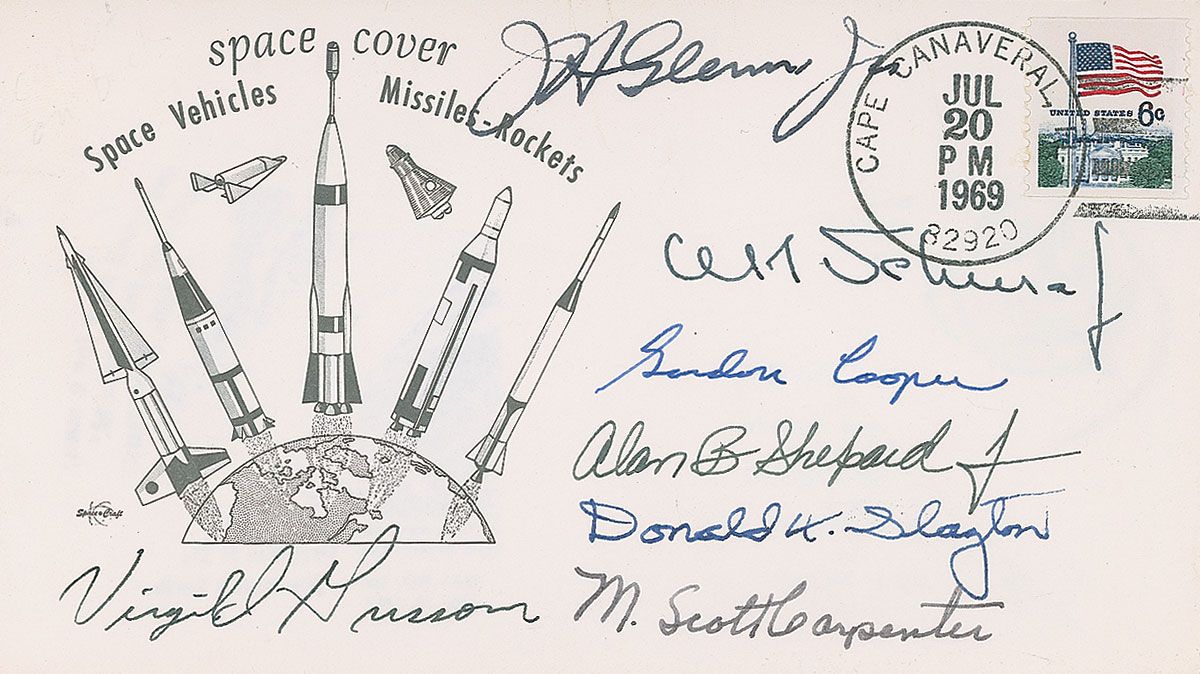 space cover
Space Vehicles
Missiles-Rockets
JHGlenn Jr
CAPE CANAVERAL,
JUL
20
PM
1969
32920
UNITED STATES 6c
W M Schirra J
Gordon Cooper
Alan B Shepard Jr
Donald K. Slayton
Space Craft
Virgil I Grissom
M. Scott Carpenter